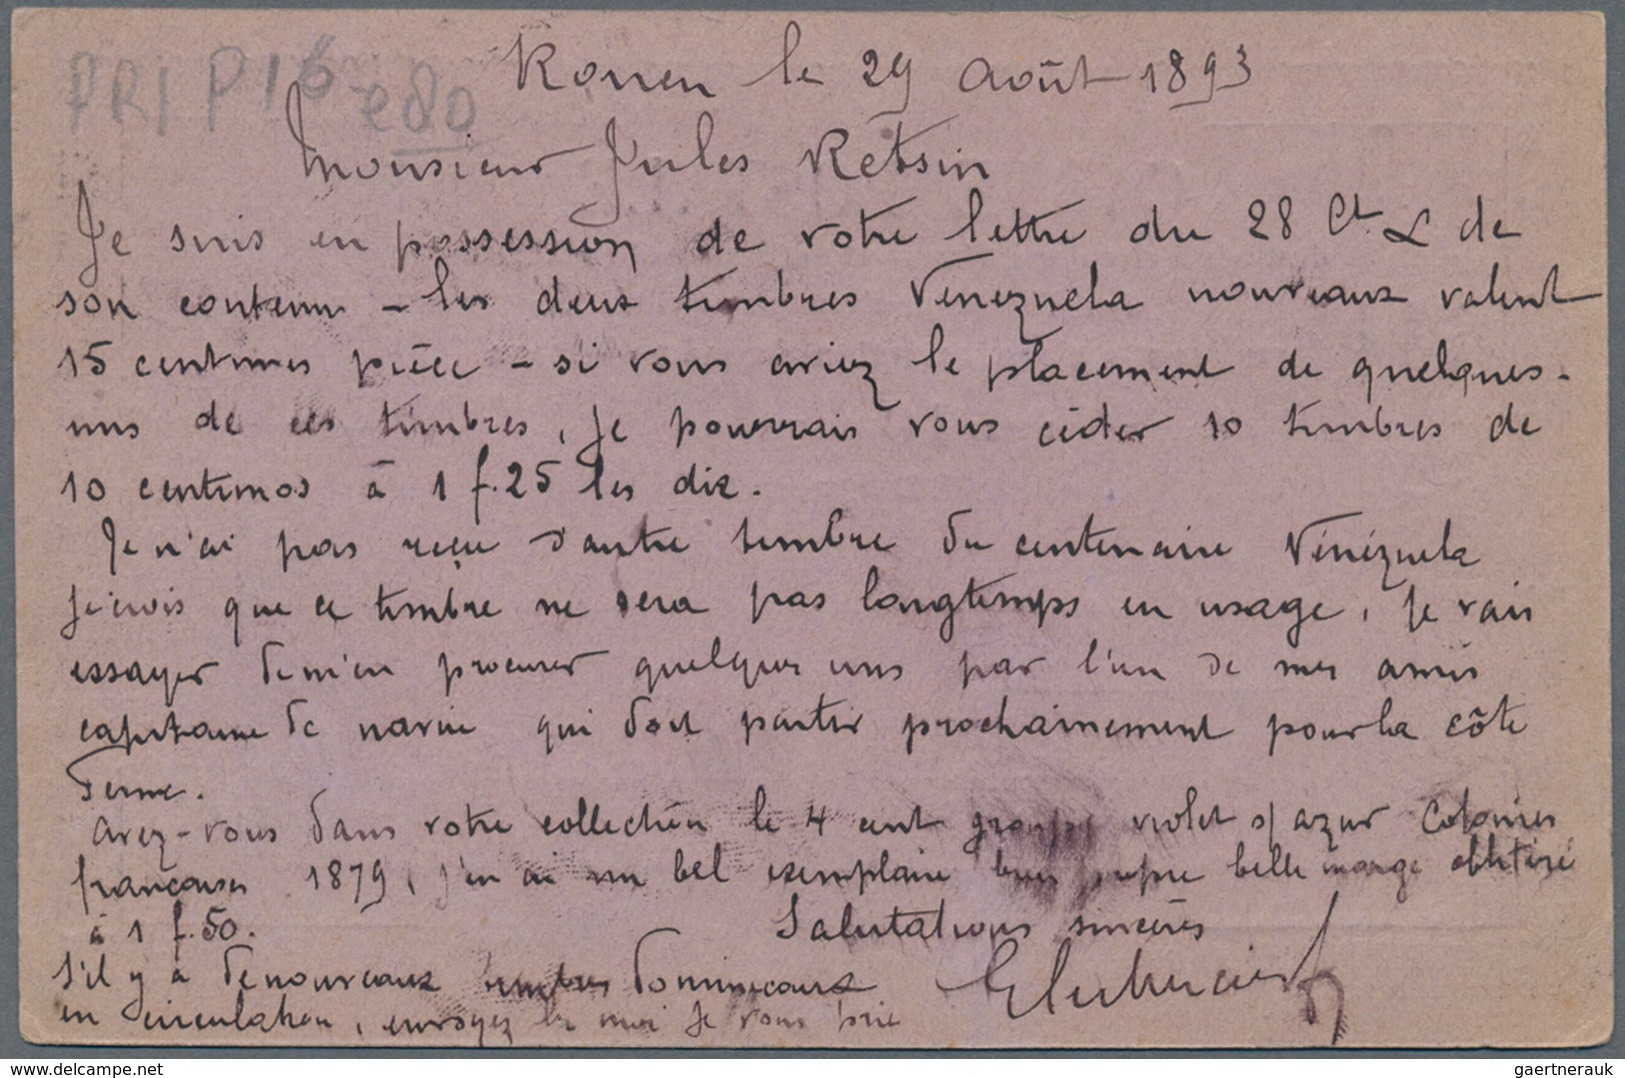 PRI P16
e80
Rouen le 29 Août 1893
Monsieur Jules Retsin
Je suis en possession de votre lettre du 28 Ct & de
son contenu - les deux timbres Vénézuela nouveaux valent
15 centimes pièce - si vous aviez le placement de quelques-
uns de ces timbres, je pourrais vous céder 10 timbres de
10 centimos à 1 f.25 les dix.
Je n'ai pas reçu d'autre timbre du centenaire Vénézuela
je crois que ce timbre ne sera pas longtemps en usage, je vais
essayer de m'en procurer quelques uns par l'un de mes amis
capitaine de navire qui doit partir prochainement pour la côte
ferme.
avez-vous dans votre collection le 4 cent groupe violet s/ azur Colonies
françaises 1879, j'en ai un bel exemplaire belle marge oblitéré
à 1 f.50.
Salutations sincères
S'il y a de nouveaux timbres dominicains
en circulation, envoyez les moi je vous prie
www.stamp-auctions.de
gaertnerauk